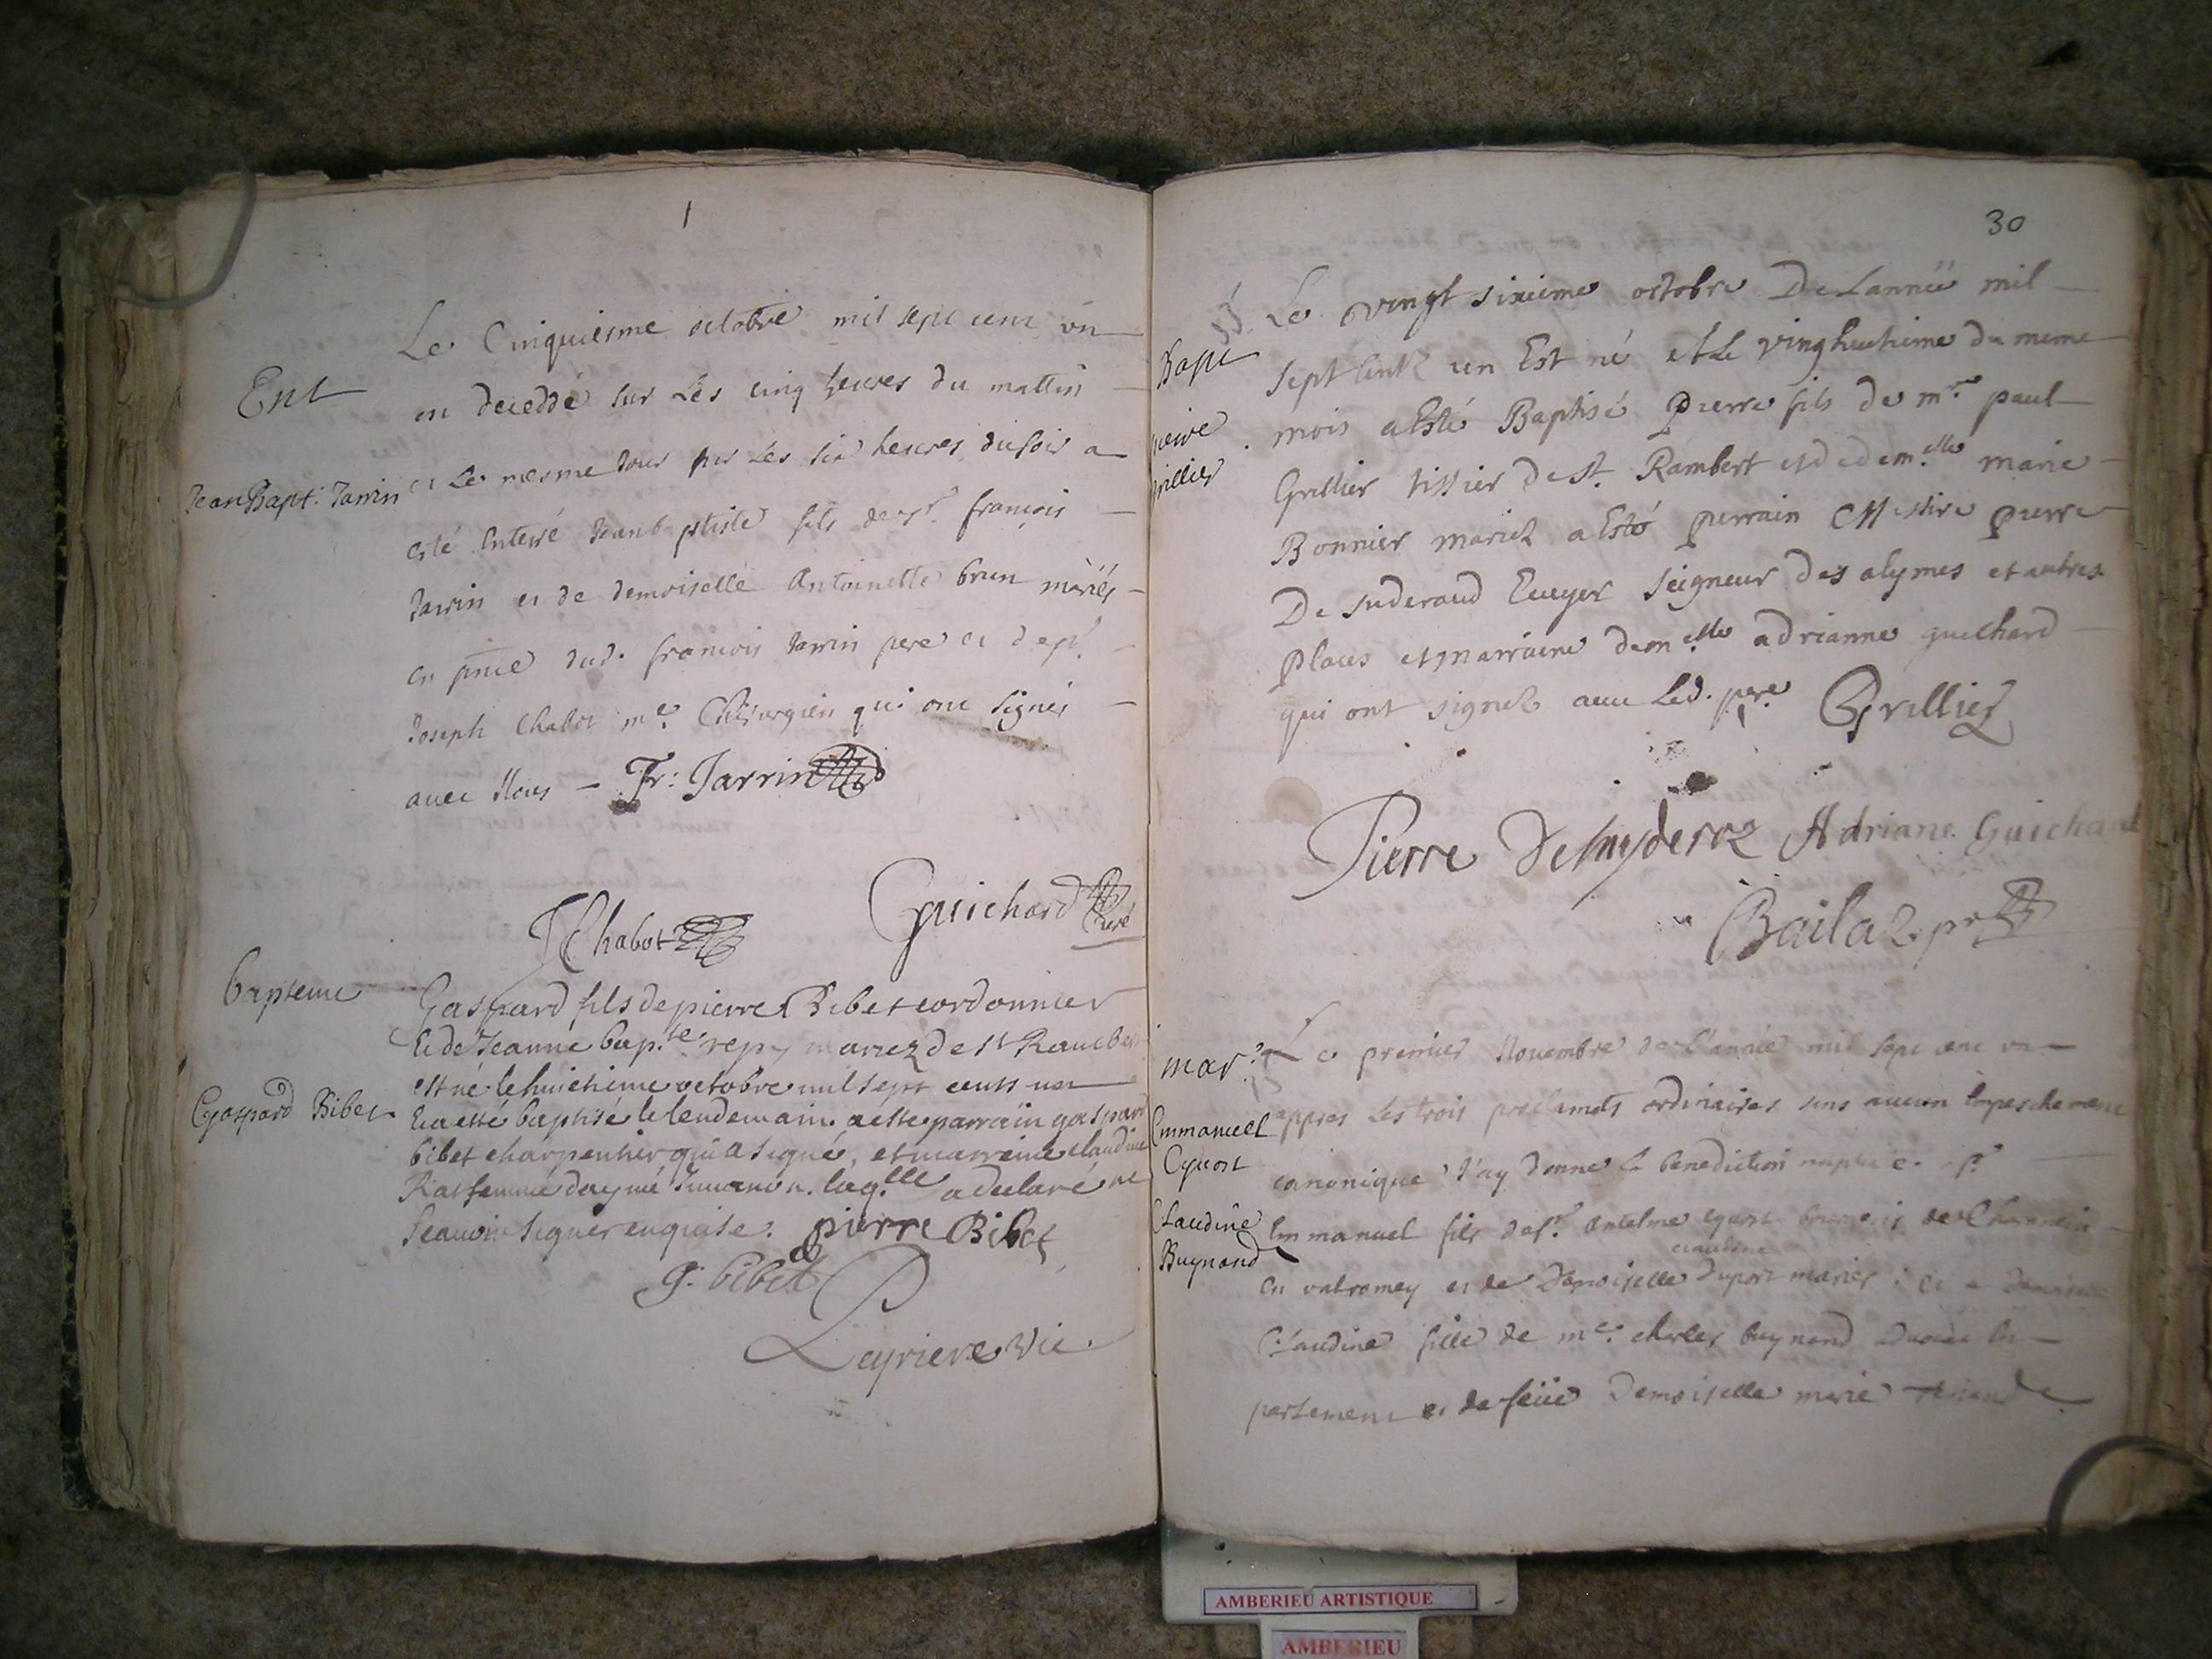 1
Le Cinquiesme octobre mil sept cent un
Ent
est decedde sur Les cinq heures du mattin
Jean Bapt. Jarrin
et Le mesme Jour sur Les six heures du soir a
esté Enterré Jean baptiste fils de sr. françois
Jarrin et de demoiselle Antoinette brun mariés
en pnce dud. francois Jarrin pere et de sr.
Joseph Chabot me. Chirurgien qui ont signés
avec Nous - Fr: Jarrin
JChabot
Guichard Curé
bapteme
Gaspard fils de pierre Bibet cordonnier
Et de Jeanne bap.te repy mariez de St Rambert
est né le huictieme octobre mil sept cents un
Gaspard Bibet
Et a esté baptisé le lendemain. a esté parrain gaspard
bibet charpentier qui a signé, et marreine claudine
Rat femme d'aymé laq.lle a declaré ne
scavoir signer enquise. pierre Bibet
g. bibet
Leyriere Vic.
30
Le vingt sixieme octobre De Lanneé mil
Bapt
sept centz un Est né et Le vingt huitieme du meme
pierre
mois a Esté Baptisé Pierre fils de mre. paul
Grillier
Grillier tissier de St. Rambert et de dem.elle marie
Bonnier mariez a Esté perrain Messire pierre
De suderaud Ecuyer Seigneur des alymes et autres
places et marraine dem.elle adrianne guichard
qui ont signez avec Led. pere Grillier
Pierre Adriane Guichard
Bailaz. pr
mar.
Le premier Novembre de l'année mil sept cent un
appres Les trois proclamats ordinaires sans aucun Empeschement
Emmanuel
Cyvost
canonique J'ay donné la benediction nuptiale a sr.
Claudine
Buynand
Emmanuel fils de sr. Antelme Cyvost bourgeois de
claudine
En valromey et de Demoiselle Duport mariés : et a Demoiselle
Claudine fille de me. charles buynand avocat En
parlement et de feüe Demoiselle marie
AMBERIEU ARTISTIQUE
AMBERIEU